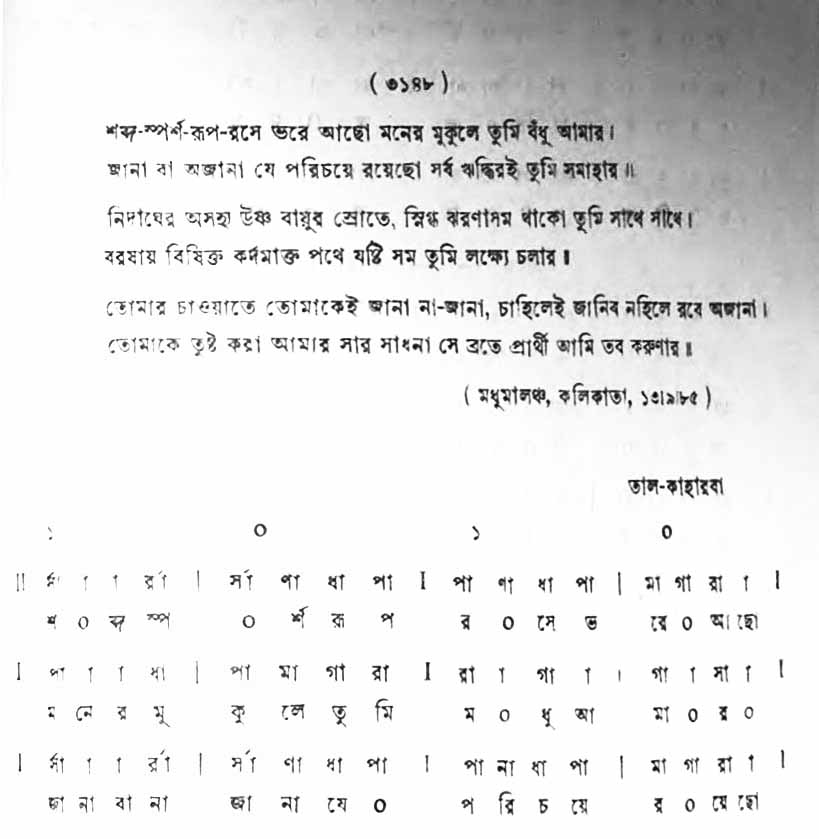 ( ৩১৪৮ )
শব্দ-স্পর্শ-রূপ-রসে ভরে আছো মনের মুকুলে তুমি বঁধু আমার।
জানা বা অজানা যে পরিচয়ে রয়েছো সর্ব ঋদ্ধিরই তুমি সমাহার॥
নিদাঘের অসহ্য উষ্ণ বায়ুর স্রোতে, স্নিগ্ধ ঝরণাসম থাকো তুমি সাথে সাথে।
বরষায় বিষিক্ত কর্দমাক্ত পথে যষ্টি সম তুমি লক্ষ্যে চলার॥
তোমার চাওয়াতে তোমাকেই জানা না-জানা, চাহিলেই জানিব নহিলে রবে অজানা।
তোমাকে তুষ্ট করা আমার সার সাধনা সে ব্রতে প্রার্থী আমি তব করুণার॥
( মধুমালঞ্চ, কলিকাতা, ১৩৷৯৷৮৫ )
তাল-কাহারবা
১ ০ ১ ০
II র্সা া া র্রা | র্সা ণা ধা পা I পা ণা ধা পা | মা গা রা া I
শ ০ ব্দ স্প ০ র্শ রূ প র ০ সে ভ রে ০ আ ছো
I পা া া ধা | পা মা গা রা I রা া গা া । গা া সা া I
ম নে র মু কু লে তু মি ম ০ ধু আ মা ০ র ০
I র্সা া া র্রা | র্সা ণা ধা পা I পা না ধা পা | মা গা রা া I
জা না বা না জা না যে ০ প রি চ য়ে র ০ য়ে ছো